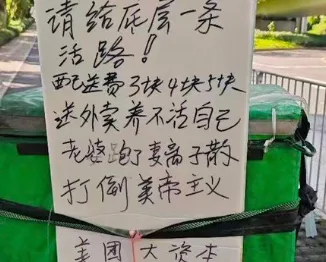 请给底层一条
活路！
配送费3块4块5块
送外卖养不活自己
老婆跑了妻离子散
打倒美帝主义
美团大资本